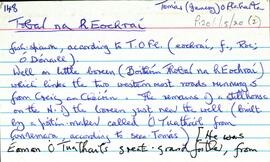 148
Tomás (Jimmy) O Flaherta
P120/1/5/20 (2)
Tobal na hEochraí
fish-spawn, according to T. O Fl. (eochraí, f., Roe;
O Dónaill)
Well on little boreen (Boithrín Thobal na hEochraí)
which links the two western most roads running
from Creig an Chéirín. The remains of a stillhouse
on the N. of the boreen just near the well (built
by a poitín-maker called O Tuathail from
Connemara, according to see Tomás) [He was
Eamon O Tuathail's great-grandfather, from